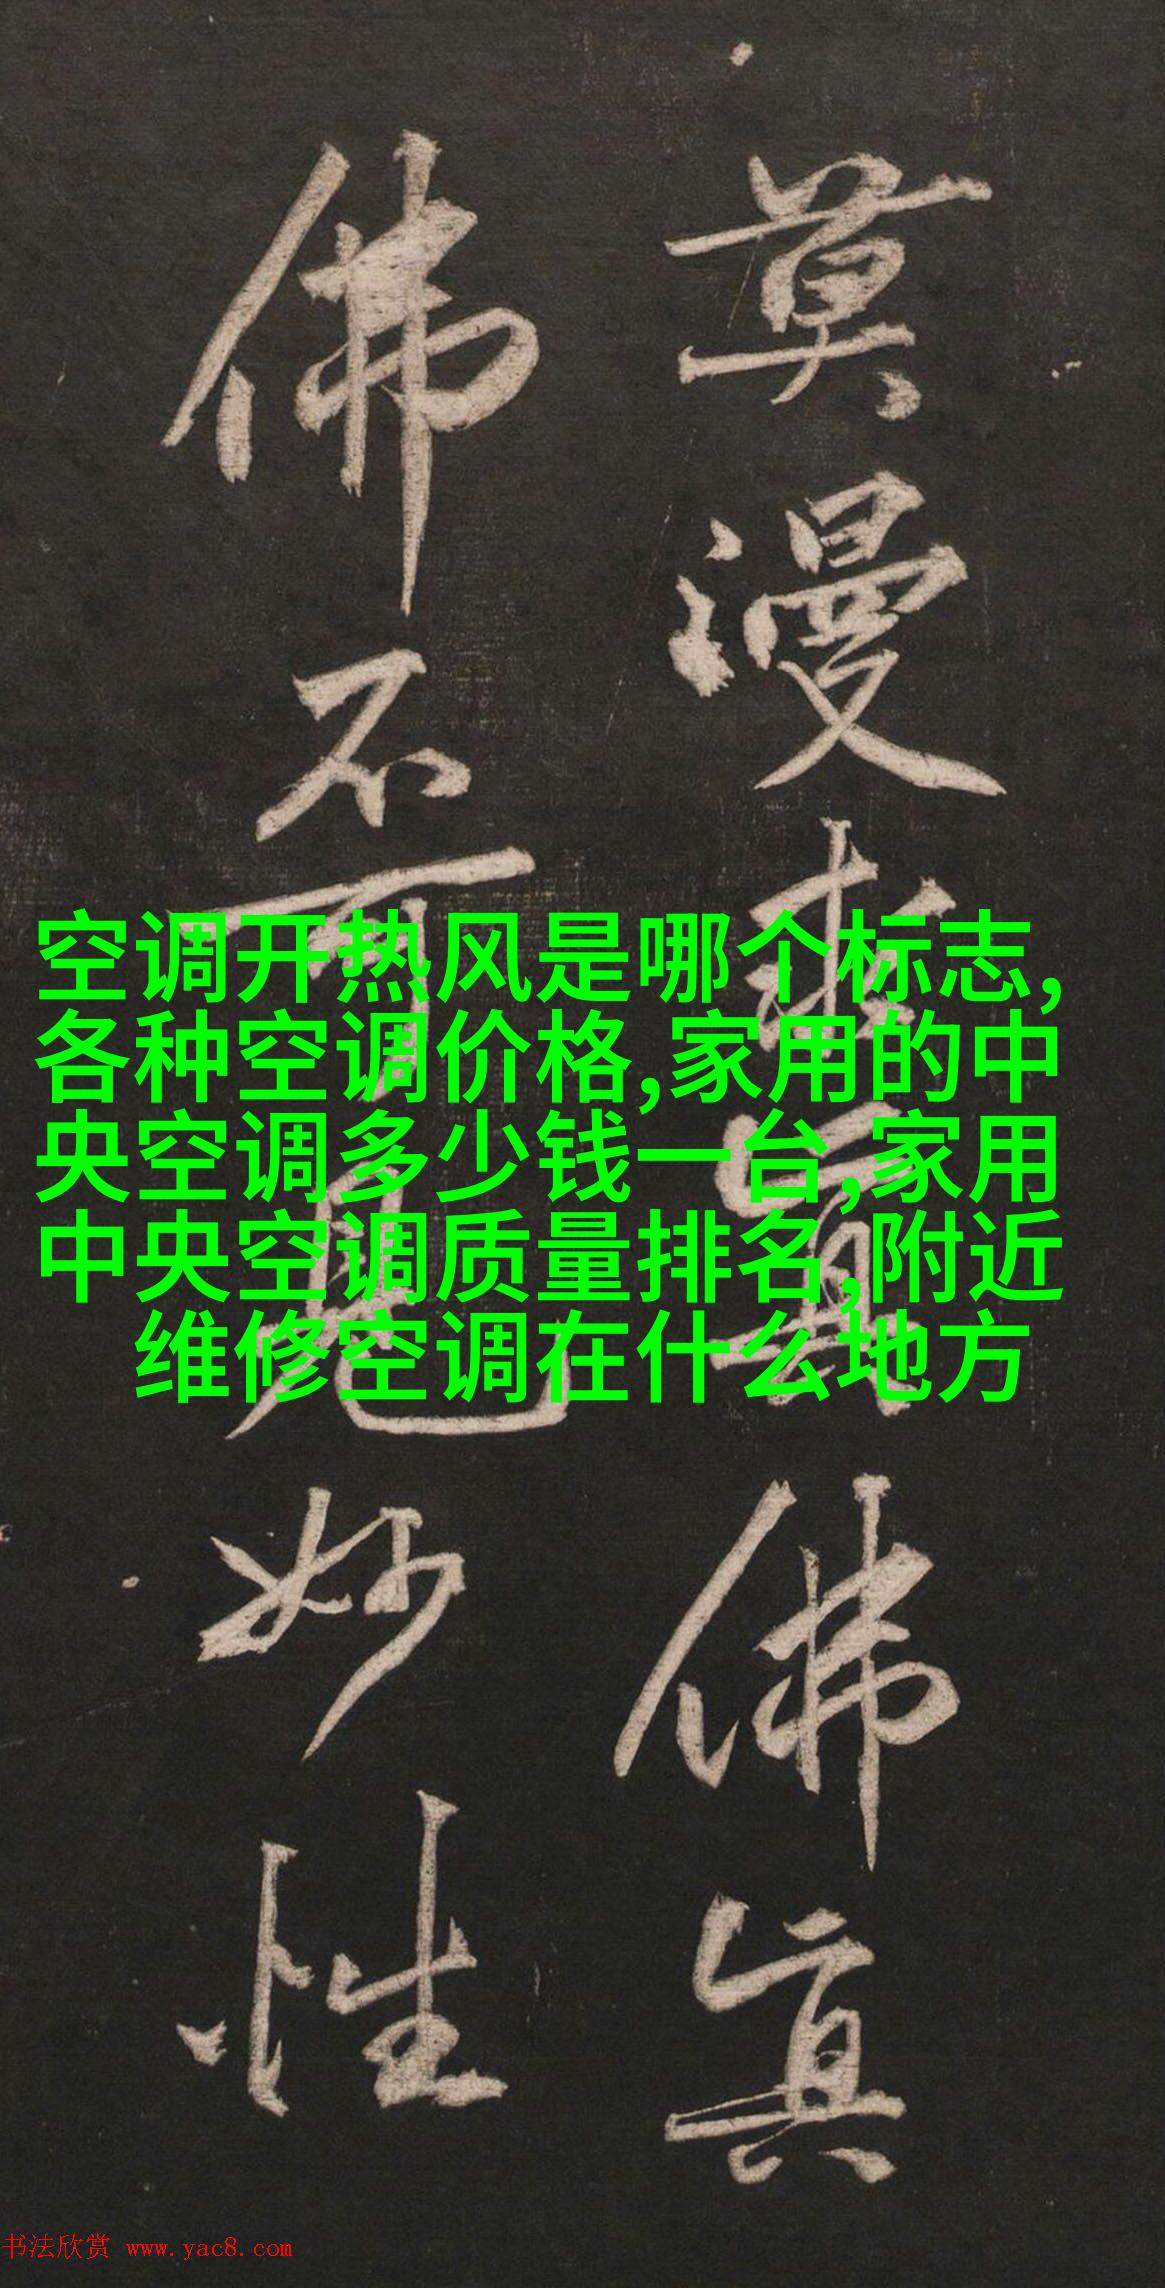 莫漫求真佛真
佛不可見妙性
空调开热风是哪个标志,
各种空调价格,家用的中
央空调多少钱一台,家用
中央空调质量排名,附近
维修空调在什么地方
书法欣赏 www.yac8.com